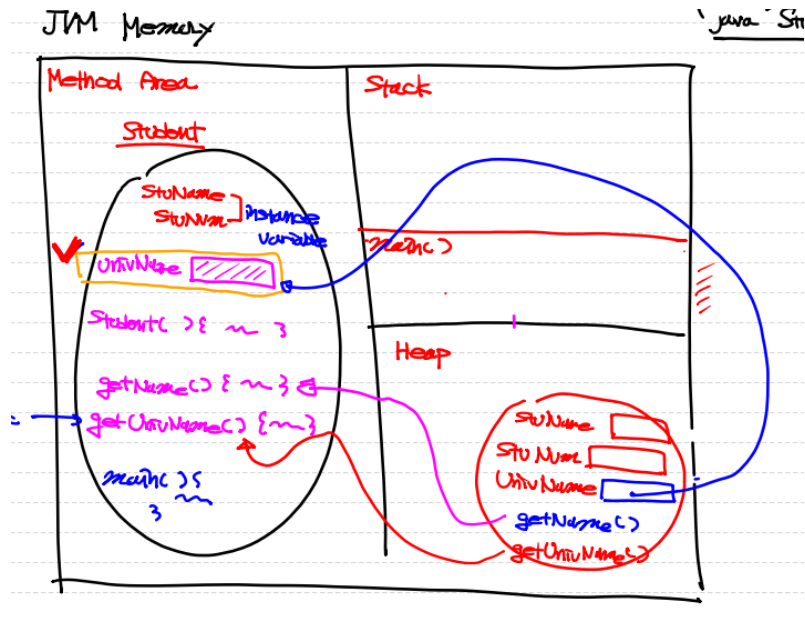 JVM Memory
java Stu
Method Area
Student
StuName
StuNum
instance
variable
UnivName
Student( ) { ~ }
getName() { ~ }
getUnivName() { ~ }
main( ) {
~
}
Stack
main()
Heap
StuName
StuNum
UnivName
getName()
getUnivName()